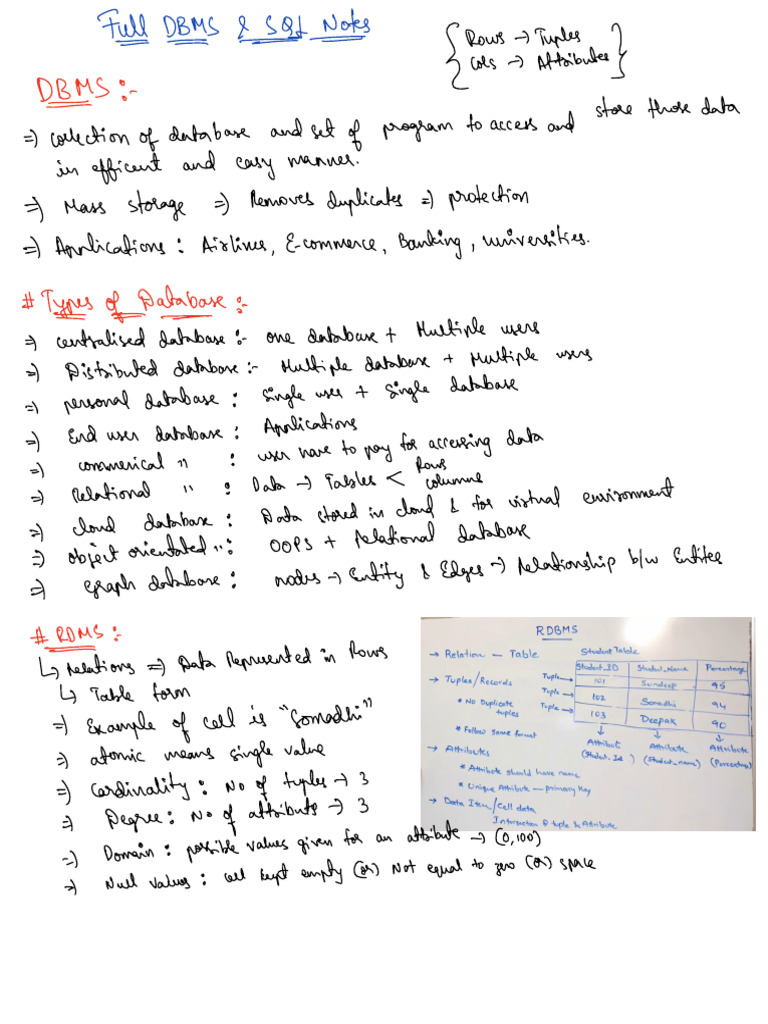 Full DBMS & SQL Notes
Rows → Tuples
Cols → Attributes
DBMS :-
⇒ collection of database and set of program to access and store those data
in efficent and easy manner.
⇒ Mass storage ⇒ Removes duplicates ⇒ protection
⇒ Applications : Airlines, E-commerce, Banking, universities.
# Types of Database :-
⇒ centralised database :- one database + Multiple users
⇒ Distributed database :- Multiple database + Multiple users
⇒ personal database : Single user + Single database
⇒ End user database : Applications
⇒ commerical " : user have to pay for accessing data
⇒ Relational " : Data → Tables < Rows
columns
⇒ cloud database : Data stored in cloud & for virtual environment
⇒ object orientated " : OOPS + Relational database
⇒ graph database : nodes → Entity & Edges → Relationship b/w Entites
# RDMS :-
↳ relations ⇒ Data Represented in Rows
↳ Table form
⇒ Example of cell is "Somadhi"
⇒ atomic means single value
⇒ Cardinality : No of tuples → 3
⇒ Degree : No of attributs → 3
⇒ Domain : possible values given for an attribute → (0,100)
⇒ Null values : cell kept empty (or) Not equal to zero (or) space
RDBMS
→ Relation — Table
Student Table
Student_ID Student_Name Percentage
→ Tuples/Records
Tuple → 101 Sundeep 95
Tuple → 102 Somadhi 94
Tuple → 103 Deepak 90
* No Duplicate
tuples
* Follow same format
Attribut Attribute Attribute
(Student_Id) (Student_name) (Percentage)
→ Attributes
* Attribute should have name
* Unique Attribute — primary Key
→ Data Item/Cell data
Interaction of tuple & Attribute